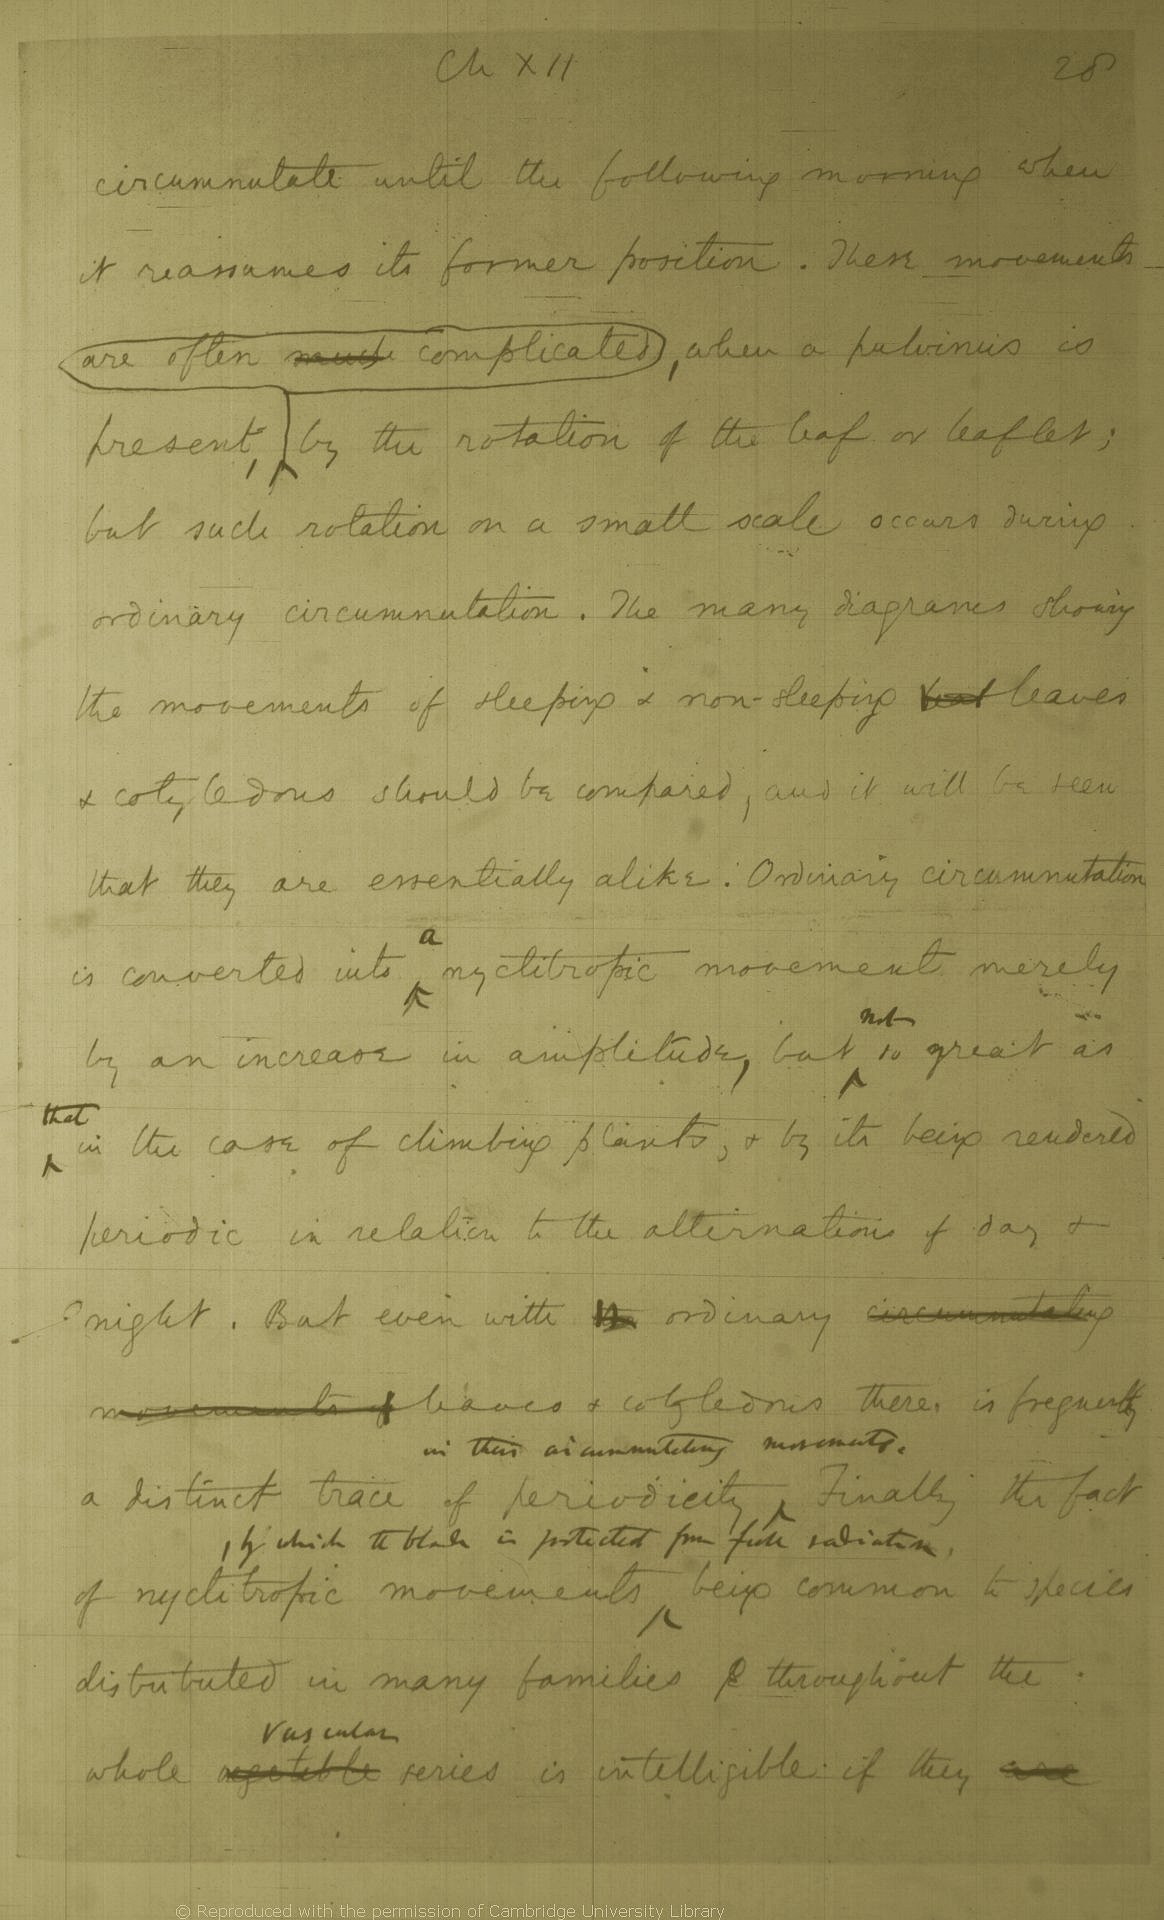 Ch XII 28
circumnutate until the following morning when
it reassumes its former position. These movements
are often much complicated, when a pulvinus is
present, by the rotation of the leaf or leaflet;
but such rotation on a small scale occurs during
ordinary circumnutation. The many diagrams showing
the movements of sleeping & non-sleeping leaves
& cotyledons should be compared, and it will be seen
that they are essentially alike. Ordinary circumnutation
a
is converted into nyctitropic movement merely
not
by an increase in amplitude, but so great as
that
in the case of climbing plants, & by its being rendered
periodic in relation to the alternations of day &
night. But even with ordinary circumnutating
movements of leaves & cotyledons there is frequently
in their circumnutating movements.
a distinct trace of periodicity Finally the fact
, by which the blade is protected from free radiation,
of nyctitropic movements being common to species
distributed in many families & throughout the
Vascular
whole vegetable series is intelligible if they are
© Reproduced with the permission of Cambridge University Library